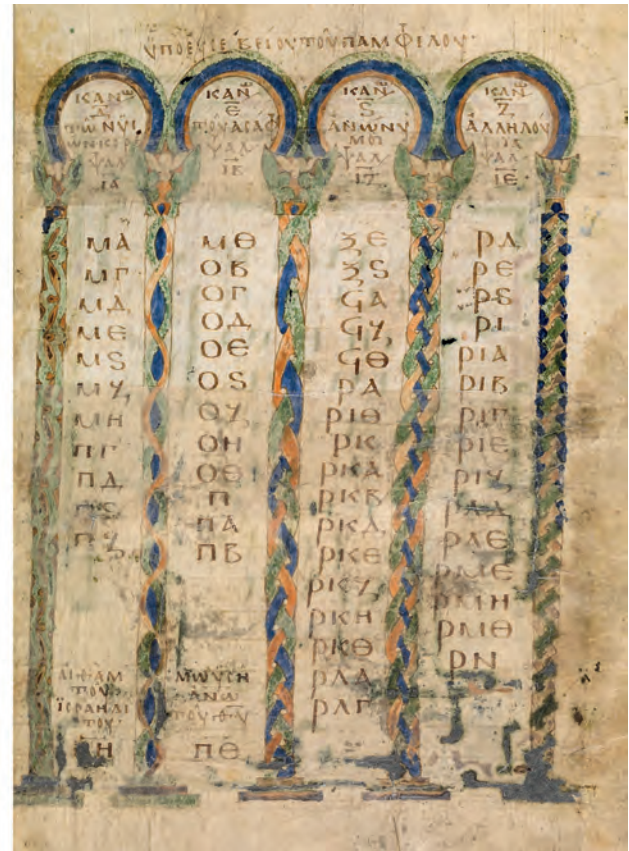 ΥΠΟ ΕΥΣΕΒΕΙΟΥ ΤΟΥ ΠΑΜΦΙΛΟΥ·
ΚΑΝΩ
Δ
ΤΩΝ ΥΙ
ΩΝ ΚΟΡ
ΨΑΛ
ΙΑ
ΜΑ
ΜΓ
ΜΔ
ΜΕ
ΜϚ
ΜΖ
ΜΗ
ΠΓ
ΠΔ
ΠϚ
ΠΖ
ΑΙΘΑΜ
ΤΟΥ
ΙϹΡΑΗΛΙ
ΤΟΥ·
ΠΗ
ΚΑΝΩ
Ε
ΤΟΥ ΑϹΑΦ
ΨΑΛ
ΙΒ
ΜΘ
ΟΒ
ΟΓ
ΟΔ
ΟΕ
ΟϚ
ΟΖ
ΟΗ
ΟΘ
Π
ΠΑ
ΠΒ
ΜΩΥϹΗ
ΑΝΟΥ
ΤΟΥ ΘΥ
ΠΘ
ΚΑΝΩ
Ϛ
ΑΝΩΝΥ
ΜΟΙ
ΨΑΛ
ΙΖ
ΞΕ
ΞϚ
ϞΑ
ϞΖ
ϞΘ
ΡΑ
ΡΙΘ
ΡΚ
ΡΚΑ
ΡΚΒ
ΡΚΔ
ΡΚΕ
ΡΚΖ
ΡΚΗ
ΡΚΘ
ΡΛΑ
ΡΛΓ
ΚΑΝΩ
Ζ
ΑΛΛΗΛΟΥ
ΙΑ
ΨΑΛ
ΙΕ
ΡΔ
ΡΕ
ΡϚ
ΡΙ
ΡΙΑ
ΡΙΒ
ΡΙΓ
ΡΙΕ
ΡΙΖ
ΡΛΔ
ΡΛΕ
ΡΜΕ
ΡΜΗ
ΡΜΘ
ΡΝ